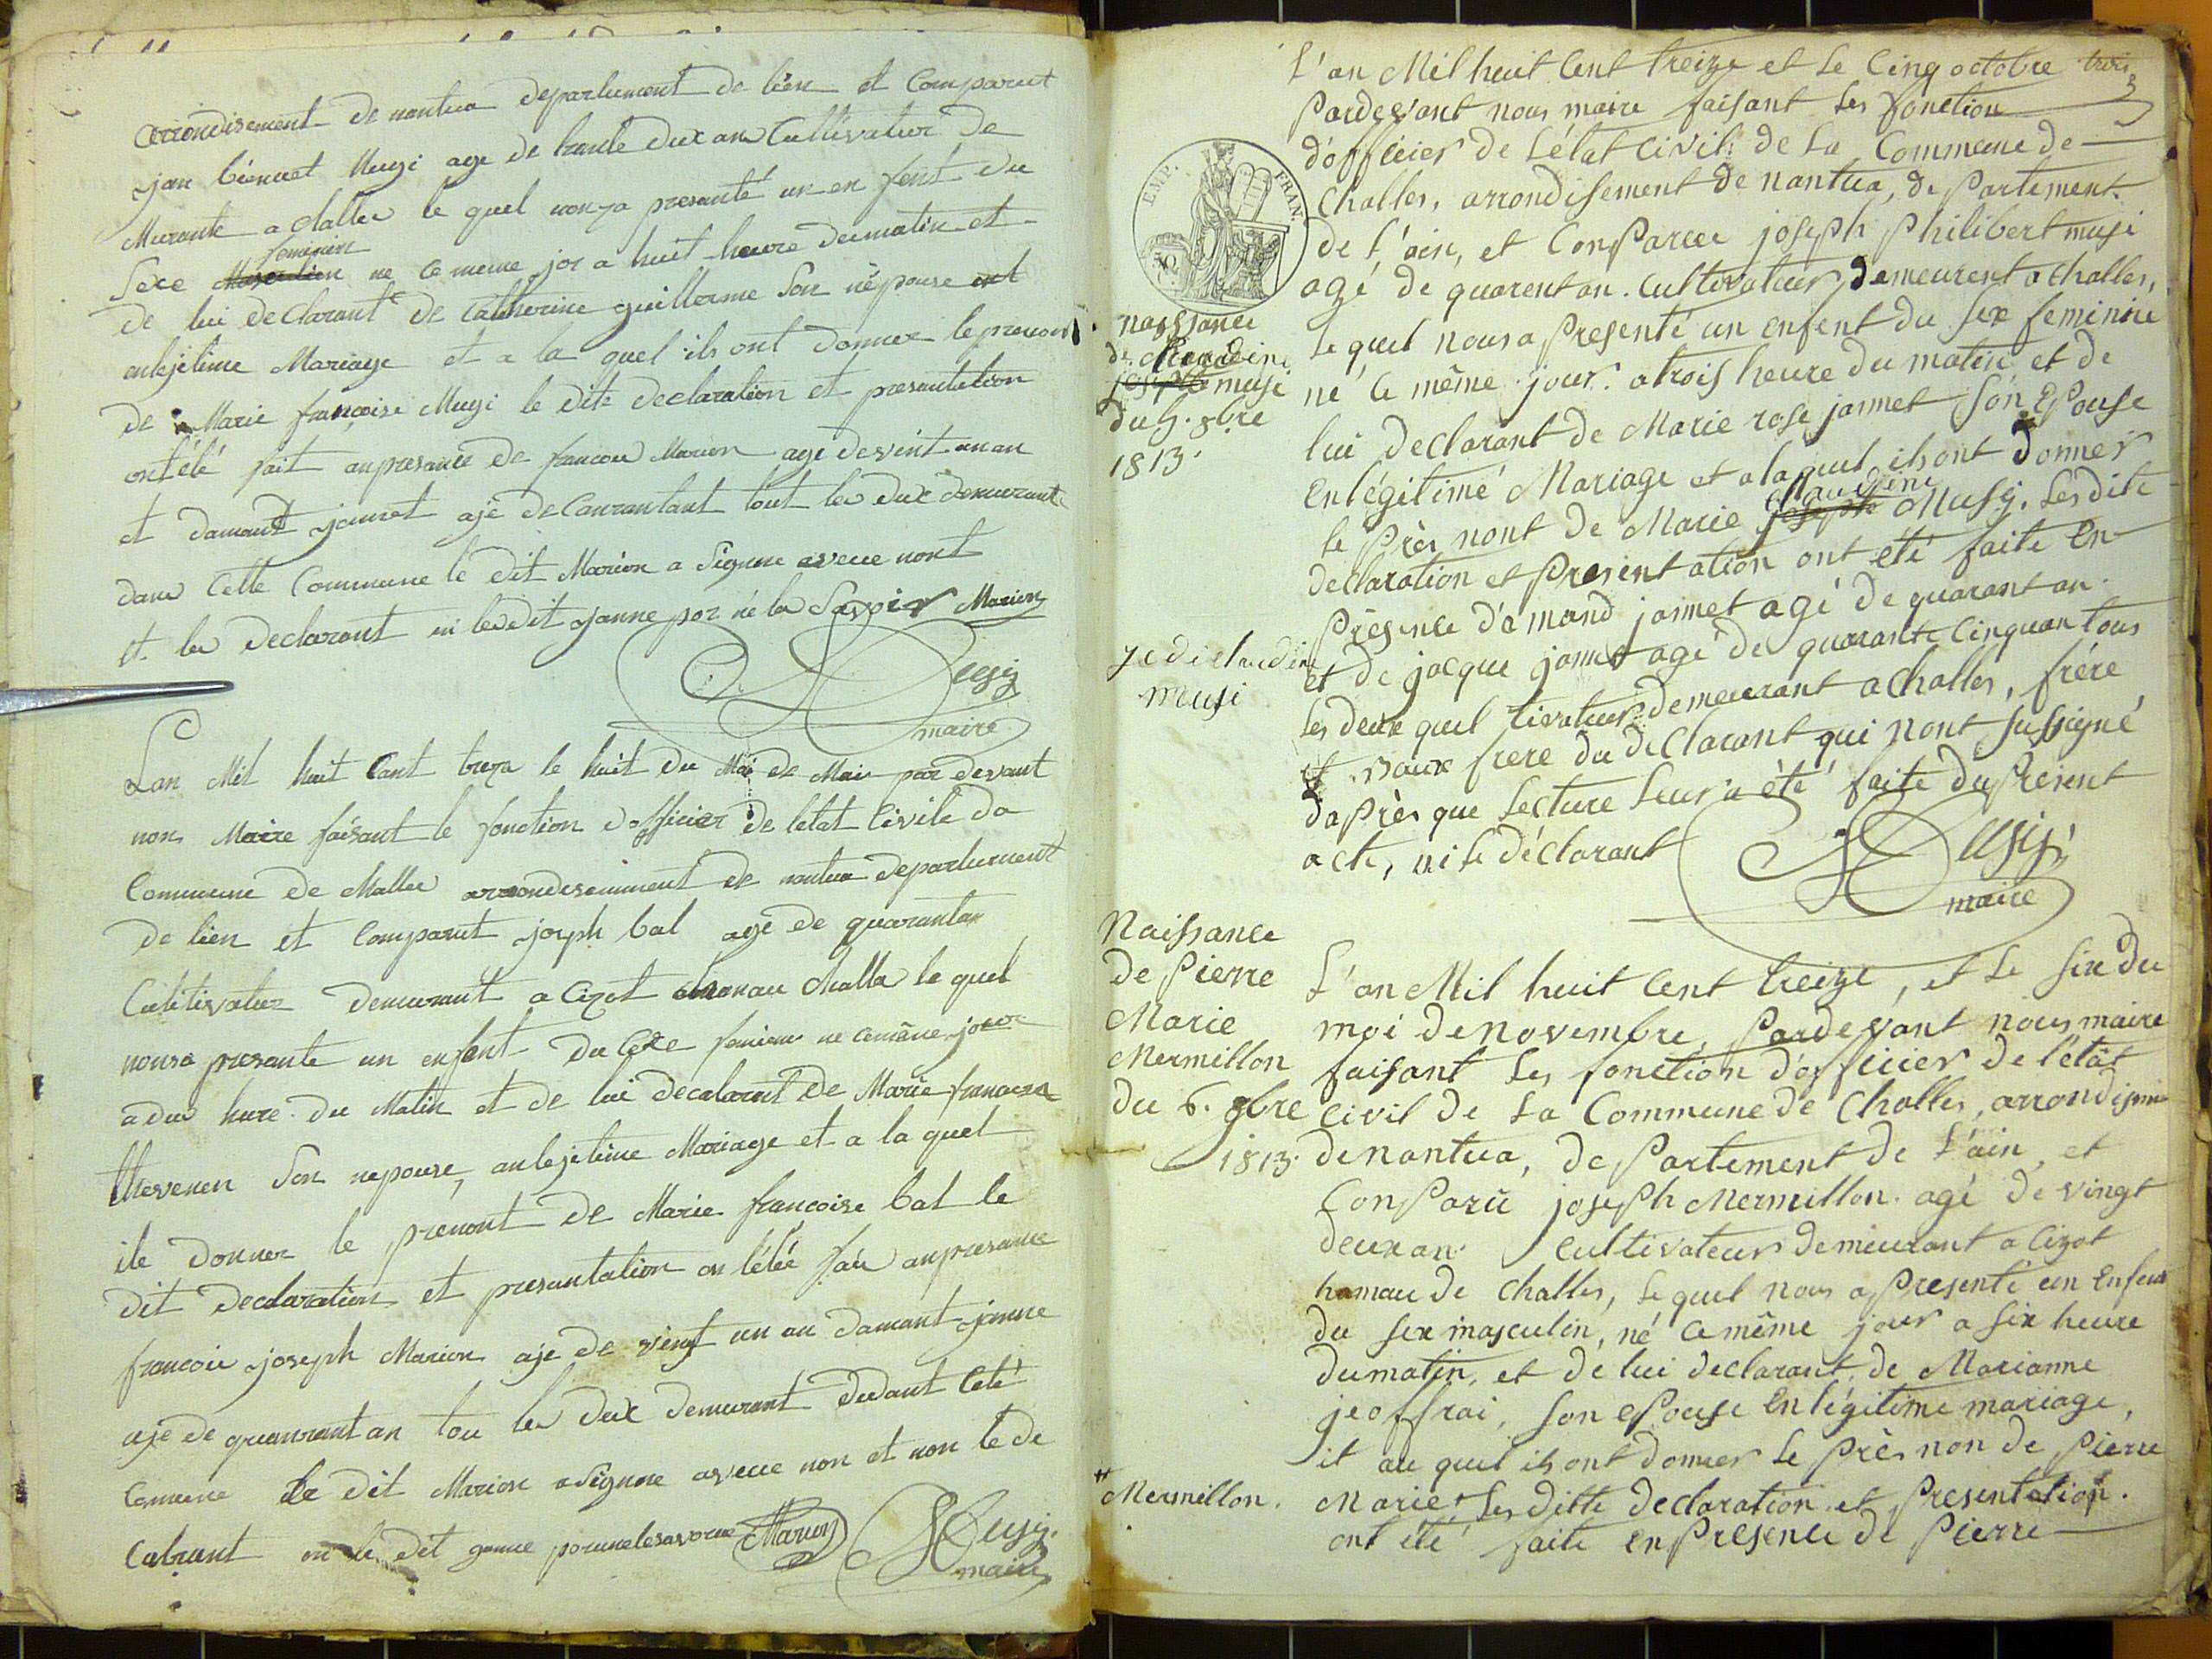 arrondisement de nantua departement de lien et Comparut
jan bienuet Mugi age de trante dux an Cultivateur de
Murante a challe le quel nouza presanté un en fent du
feminin
Sexe Masculien ne ce meme jor a huit heure dumatin et
de lui declarant de Catherine guillerme Son népouse ent
anlejetime Mariage et a la quel ils ont donner le prenon
de Marie françoise Mugi le dite declaration et presantation
ont été fait anpresance de francou Marion age devint anan
et damant jannet aje de Carrantant tout les dux demurant
dans Cette Commune le dit Marion a Signne avecce nont
et les declarant ni ledit janne por né la Savoir Marion
Musy
maire
Lan Mil huit Cant treza le huit du Moi de Mai par devant
nous Maire faisant le fonction dofficier de letat Civile da
Commune de Challes arrondisement de nantua departement
de lien et Comparut joseph bal age de quarantan
Cultivateur demurant a Cizot hamau Challa le quel
nousa presante un enfent du Cexe feminin ne cemême jour
a dux hure du Matin et de lui decalarent de Marie francoise
Thevenen Son nepouse, anlejetime Mariage et a la quel
ile donner le prenont de Marie francoise bal le
dit declaration et presantation on tété fait anpresance
francois joseph Marion aje de vingt un an damant janne
aje de quanrant an tou les dux demurant dedant Ceté
Comune le dit Marion a Signne avecce non et non le de
Calrant ni le dit gonne pour nelesavoir Marion Musy
maire
L'an Mil huit Cent treize et le Cinq octobre trois
3
Pardevant nous maire faisant les fonction
d'officier de L'état Civil de La Commune de
Challes, arrondisement de nantua, de Partement
de l'ain, et Conparue joseph philibert musi
agé de quarent an. Cultivateur demeurent a challes,
le quel nous a Presenté un enfent du sex feminine
né le même jour a trois heure du matin et de
lui declarant de Marie rose jannet Són Epouse
En légitimé Mariage et a laquel ils ont donner
Claudine
le près nont de Marie josephte Musy. les dite
declaration et Presentation ont eté faite En
Présence d'amand jannet agé de quarant an
et de jacque jannet agé de quarante Cinquan tous
les deux quel tivateur demeurant a challes, frére
et vaux frere du declarant qui nont su signé
d'après que lecture leur a été faite du Présent
acte, ni le déclarant
Musy
maire
EMP. FRAN.
nassance
de Claudine
josephte musi
du 5. 8bre
1813.
je di claudine
musi
Naissance
de Pierre
Marie
Mermillon
du 6. 9bre
1813.
L'an Mil huit Cent treize, et le six du
moi de Novembre, Pardevant nous maire
faisant les fonction d'officier de l'état
Civil de La Commune de Challes, arrondisme
de nantua, de Partement de L'ain, et
ConParu joseph Mermillon agé de vingt
deux an Cultivateur demeurant a Cizot
hamau de Challes, le quel nous a Presenté un Enfent
du sex masculin, né ce même jour a six heure
du matin, et de lui declarant, de Marianne
jeoffrai, son epouse En légitime mariage,
it au quel ils ont donner le près non de Pierre
Marie # Les ditte declaration et Presentation.
ont été faite en Presence de Pierre
#
Mermillon.